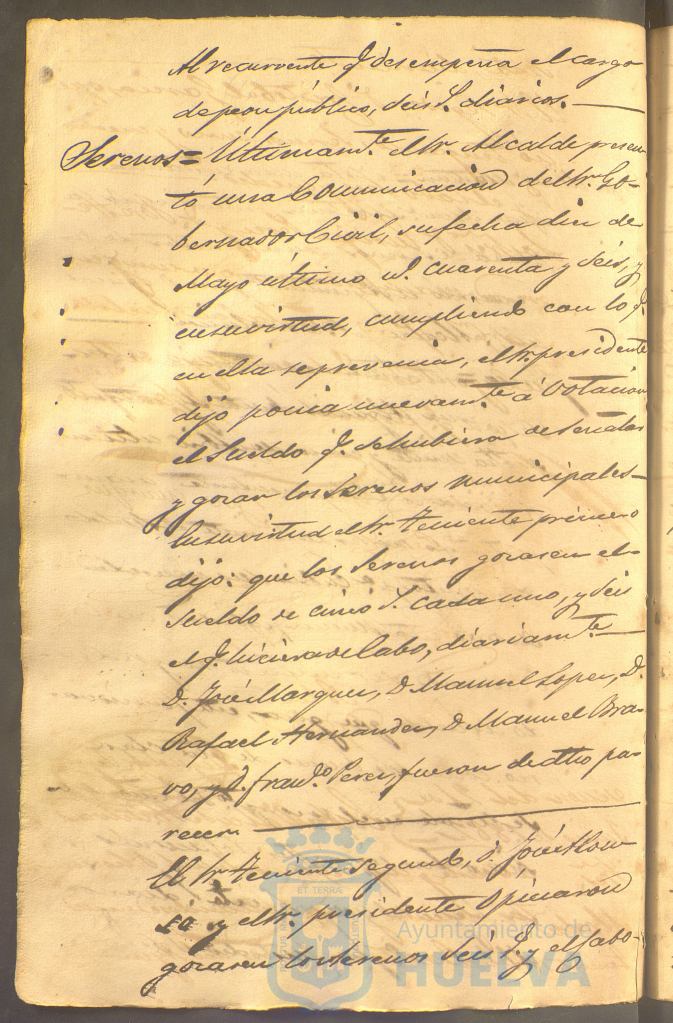 Al recurrente q.e desempeña el cargo
de peon público, seis r.s diarios.
Serenos = Ultimam.te el Sr. Alcalde presen
tó una Comunicacion del Sr. Go-
bernador Civil, su fecha diez de
Mayo último n.º cuarenta y seis, y
en su virtud, cumpliendo con lo q.e
en ella se prevenia, el Sr. presidente
dijo ponia nuevam.te á votacion
el Sueldo q.e de hubiera de señalar
y gozar los Serenos municipales
En su virtud el Sr. Teniente primero
dijo: que los Serenos gozasen el
sueldo de cinco r.s cada uno, y seis
el q.e hiciera de Cabo, diariam.te
D. José Marquez, D. Manuel Lopez, D.
Rafael Hernandez, D. Manuel Bra-
vo, y D. Fran.co Perez, fueron de dho pa-
recer.
El Sr. Teniente segundo, D. José
y el Sr. presidente Opinaron
gozasen los Serenos seis r.s y el Cabo
ET TERRAE
Ayuntamiento de
HUELVA